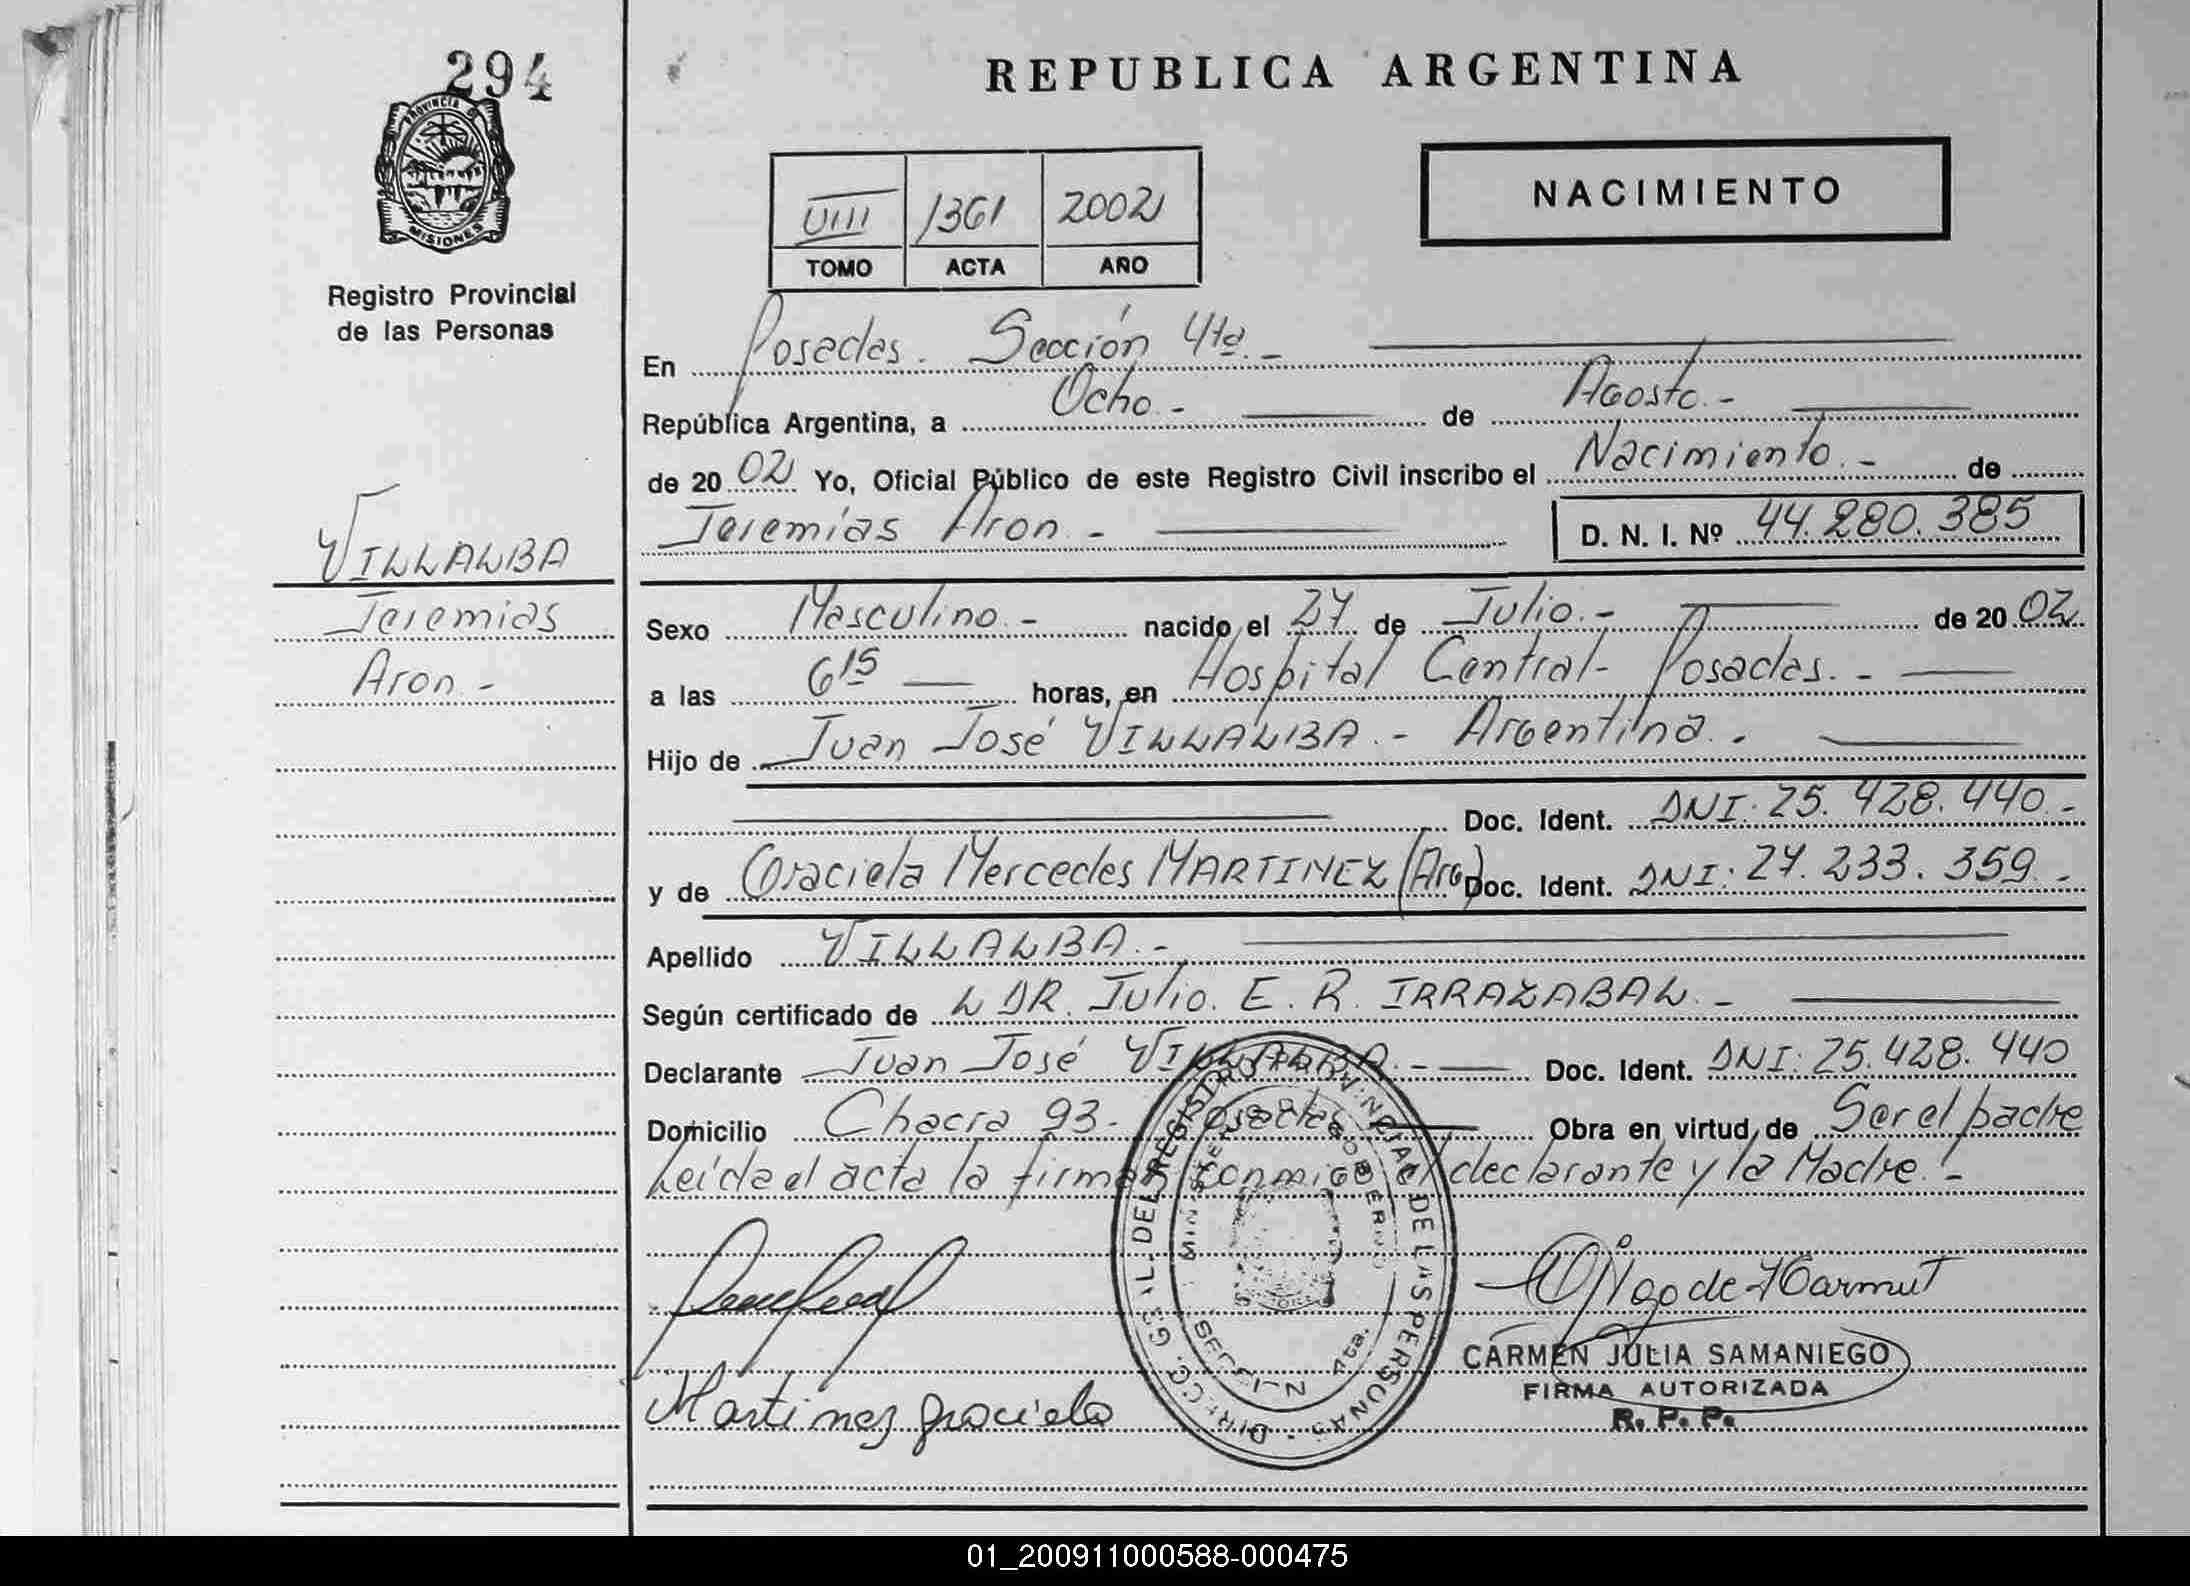 294
PROVINCIA D
MISIONES
Registro Provincial
de las Personas
VILLALBA
Jeremias
Aron -
REPUBLICA ARGENTINA
VIII 1361 2002
TOMO ACTA AÑO
NACIMIENTO
En Posadas. Sección 4ta. -
República Argentina, a Ocho - de Agosto. -
de 20 02 Yo, Oficial Público de este Registro Civil inscribo el Nacimiento. - de
Jeremías Aron. -
D. N. I. Nº 44.280.385
Sexo Masculino. - nacido el 27 de Julio. - de 20 02
a las 6 15 horas, en Hospital Central - Posadas. -
Hijo de Juan José VILLALBA. - Argentina.
Doc. Ident. DNI: 25.428.440. -
y de Graciela Mercedes MARTINEZ (Arg) Doc. Ident. DNI: 27.233.359. -
Apellido VILLALBA. -
Según certificado de L DR. Julio. E. R. IRRAZABAL. -
Declarante Juan José VILLALBA. - Doc. Ident. DNI: 25.428.440
Domicilio Chacra 93. - Posadas Obra en virtud de Ser el padre
Leída el acta la firman conmigo el declarante y la Madre. -
DIRECC. GRAL. DEL REGISTRO PROVINCIAL DE LAS PERSONAS
MINISTERIO GOBIERNO
SECCION 4ta.
Martinez graciela
CARMEN JULIA SAMANIEGO
FIRMA AUTORIZADA
R. P. P.
01_200911000588-000475